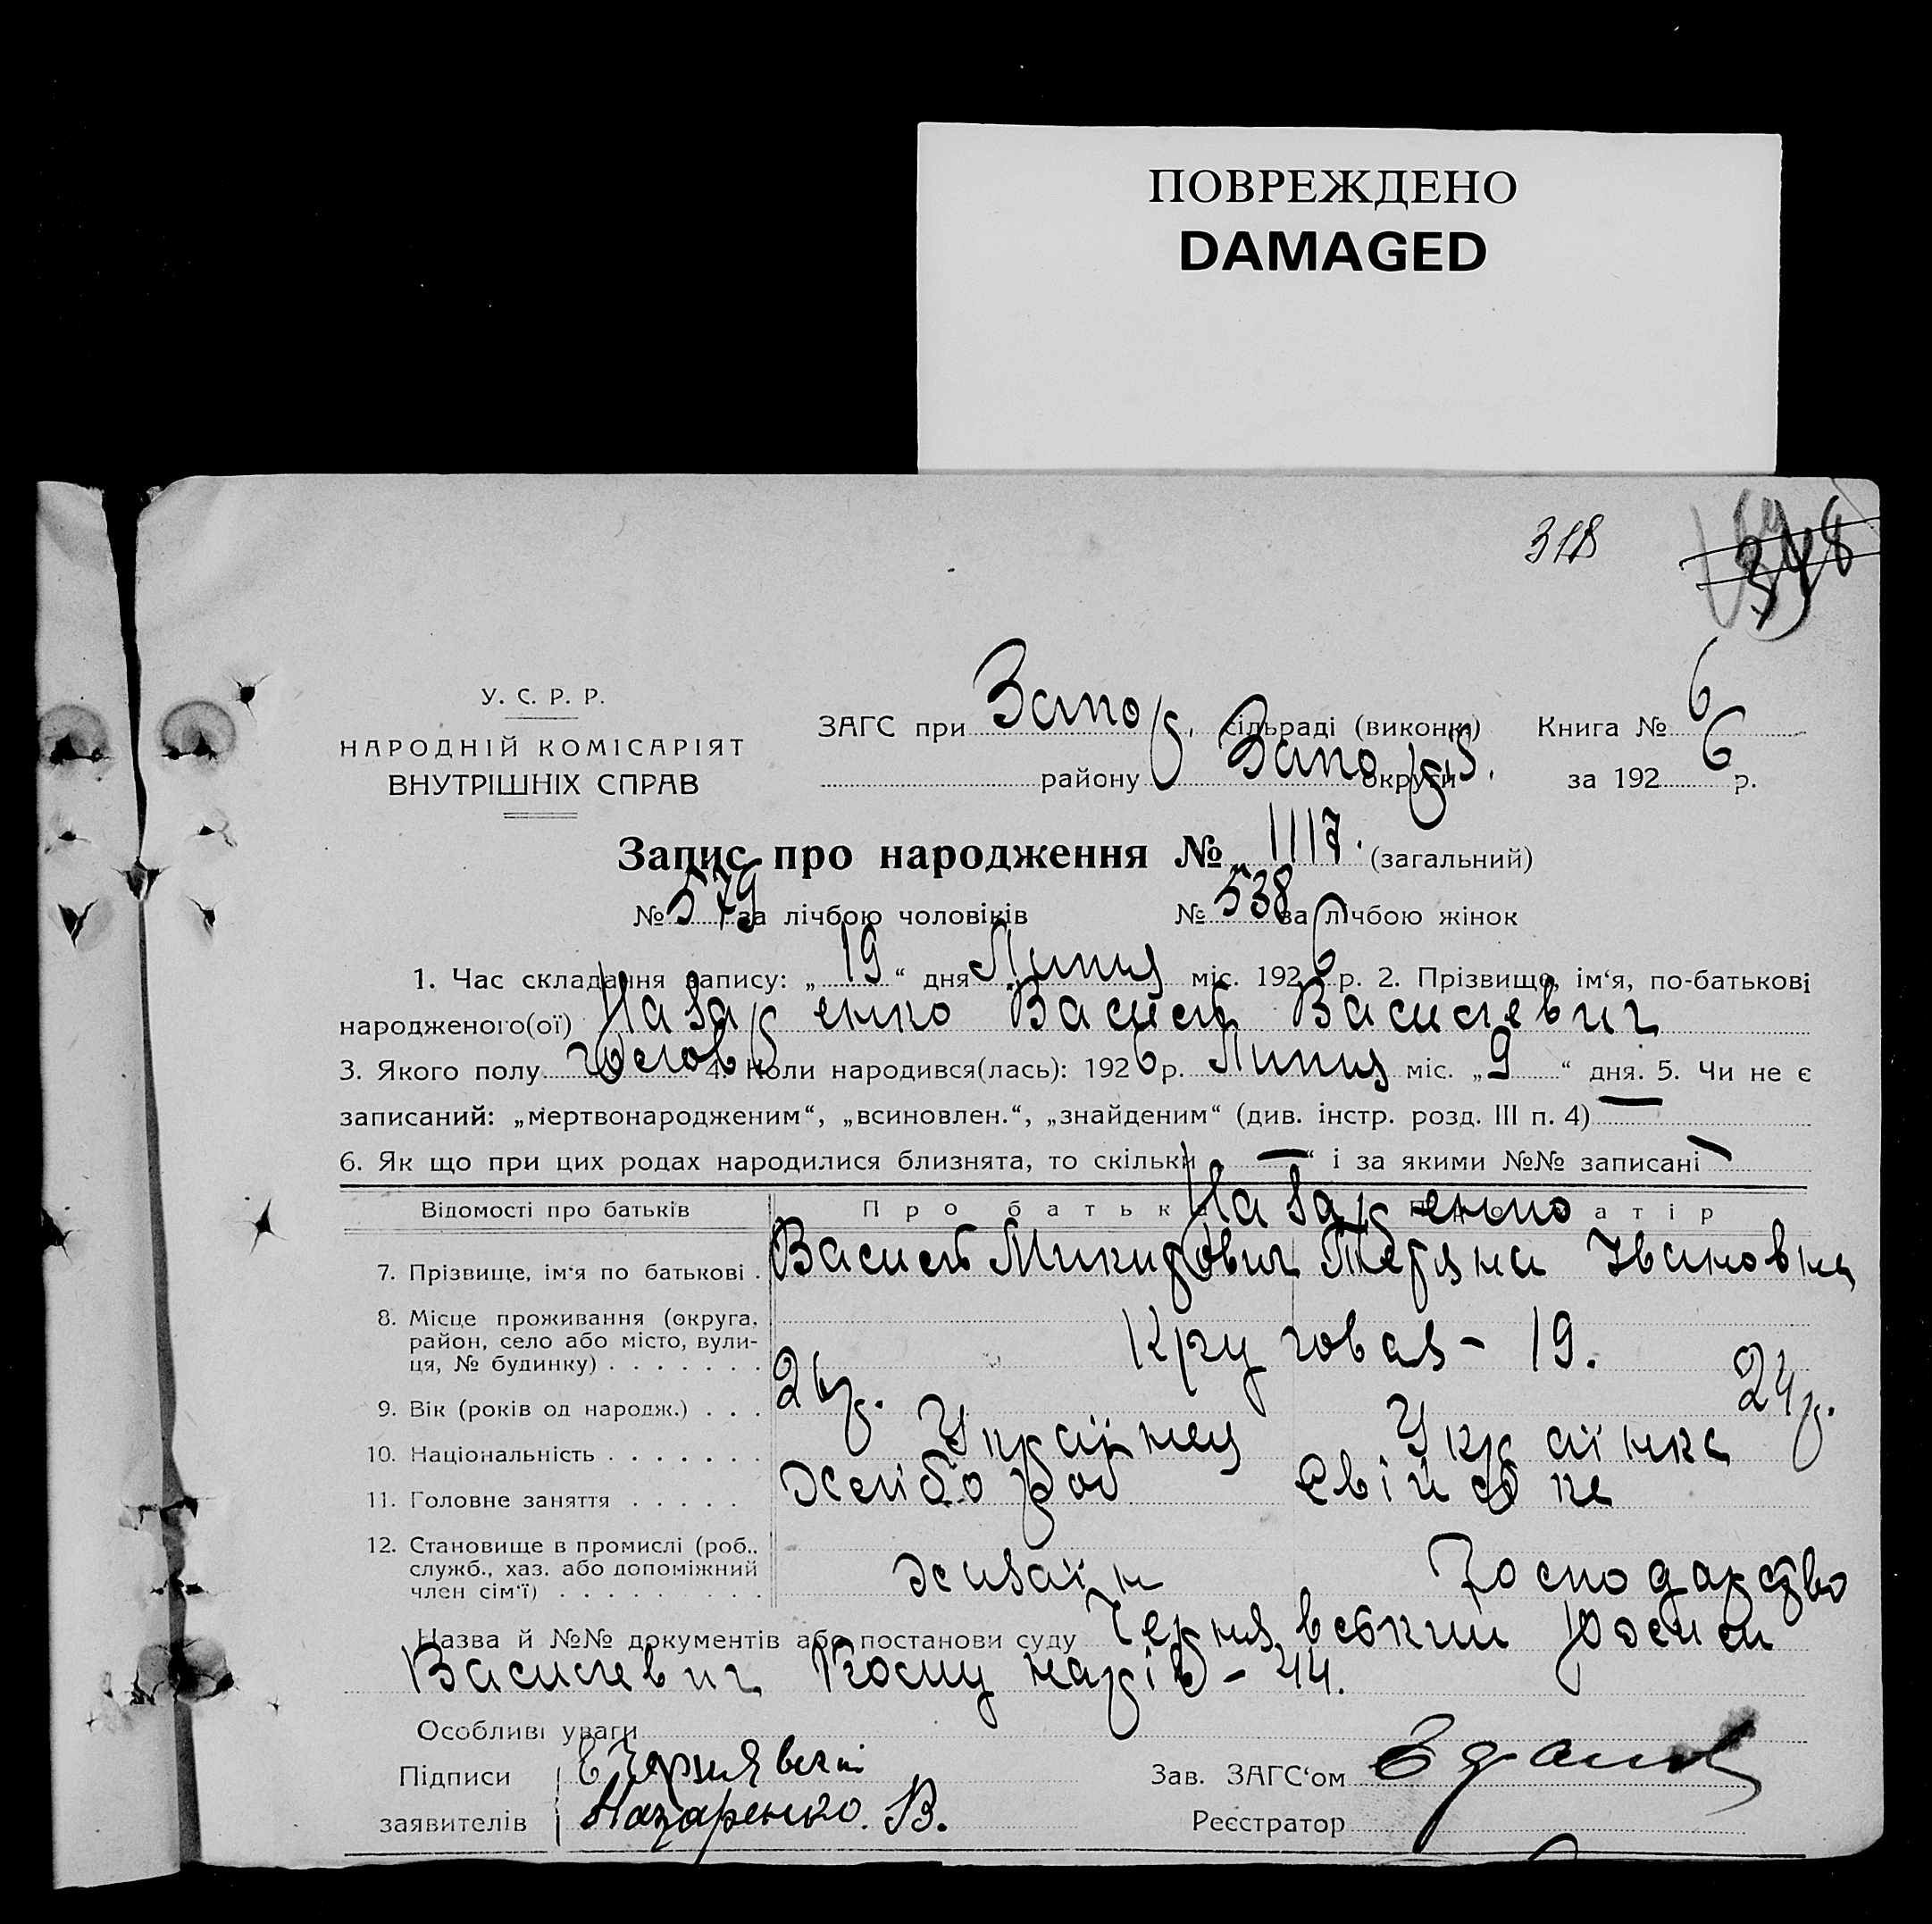 ПОВРЕЖДЕНО
DAMAGED
318
У. С. Р. Р.
НАРОДНІЙ КОМІСАРІЯТ
ВНУТРІШНІХ СПРАВ
ЗАГС при Запор. сільраді (виконк) Книга № 6
району Запоріз. округи за 1926 р.
Запис про народження № 1117. (загальний)
№ 579 за лічбою чоловіків № 538 за лічбою жінок
1. Час складання запису: „19“ дня Липця міс. 1926 р. 2. Прізвище, ім‘я, по-батькові
народженого(ої) Назаренко Василь Василевич
3. Якого полу чолов 4. Коли народився(лась): 1926 р. Липця міс. „9“ дня. 5. Чи не є
записаний: „мертвонародженим“, „всиновлен.“, „знайденим“ (див. інстр. розд. III п. 4) —
6. Як що при цих родах народилися близнята, то скільки — “ і за якими №№ записані —
Відомості про батьків Про батька Назаренко Про матір
7. Прізвище, ім‘я по батькові . Василь Микидович Івановна
8. Місце проживання (округа, район, село або місто, вулиця, № будинку) . . . . . . . Круговая - 19.
9. Вік (років од народж.) . . . 26 р. 24 р.
10. Національність . . . . . . . Українец Українка
11. Головне заняття . . . . . Хлібороб
12. Становище в промислі (роб., служб., хаз. або допоміжний член сім‘ї) . . . . . . . . Хазаїн Господарство
Назва й №№ документів або постанови суду Чернявський
Василевич - 44.
Особливі уваги
Підписи Зав. ЗАГС‘ом
заявителів Назаренко. В. Реєстратор